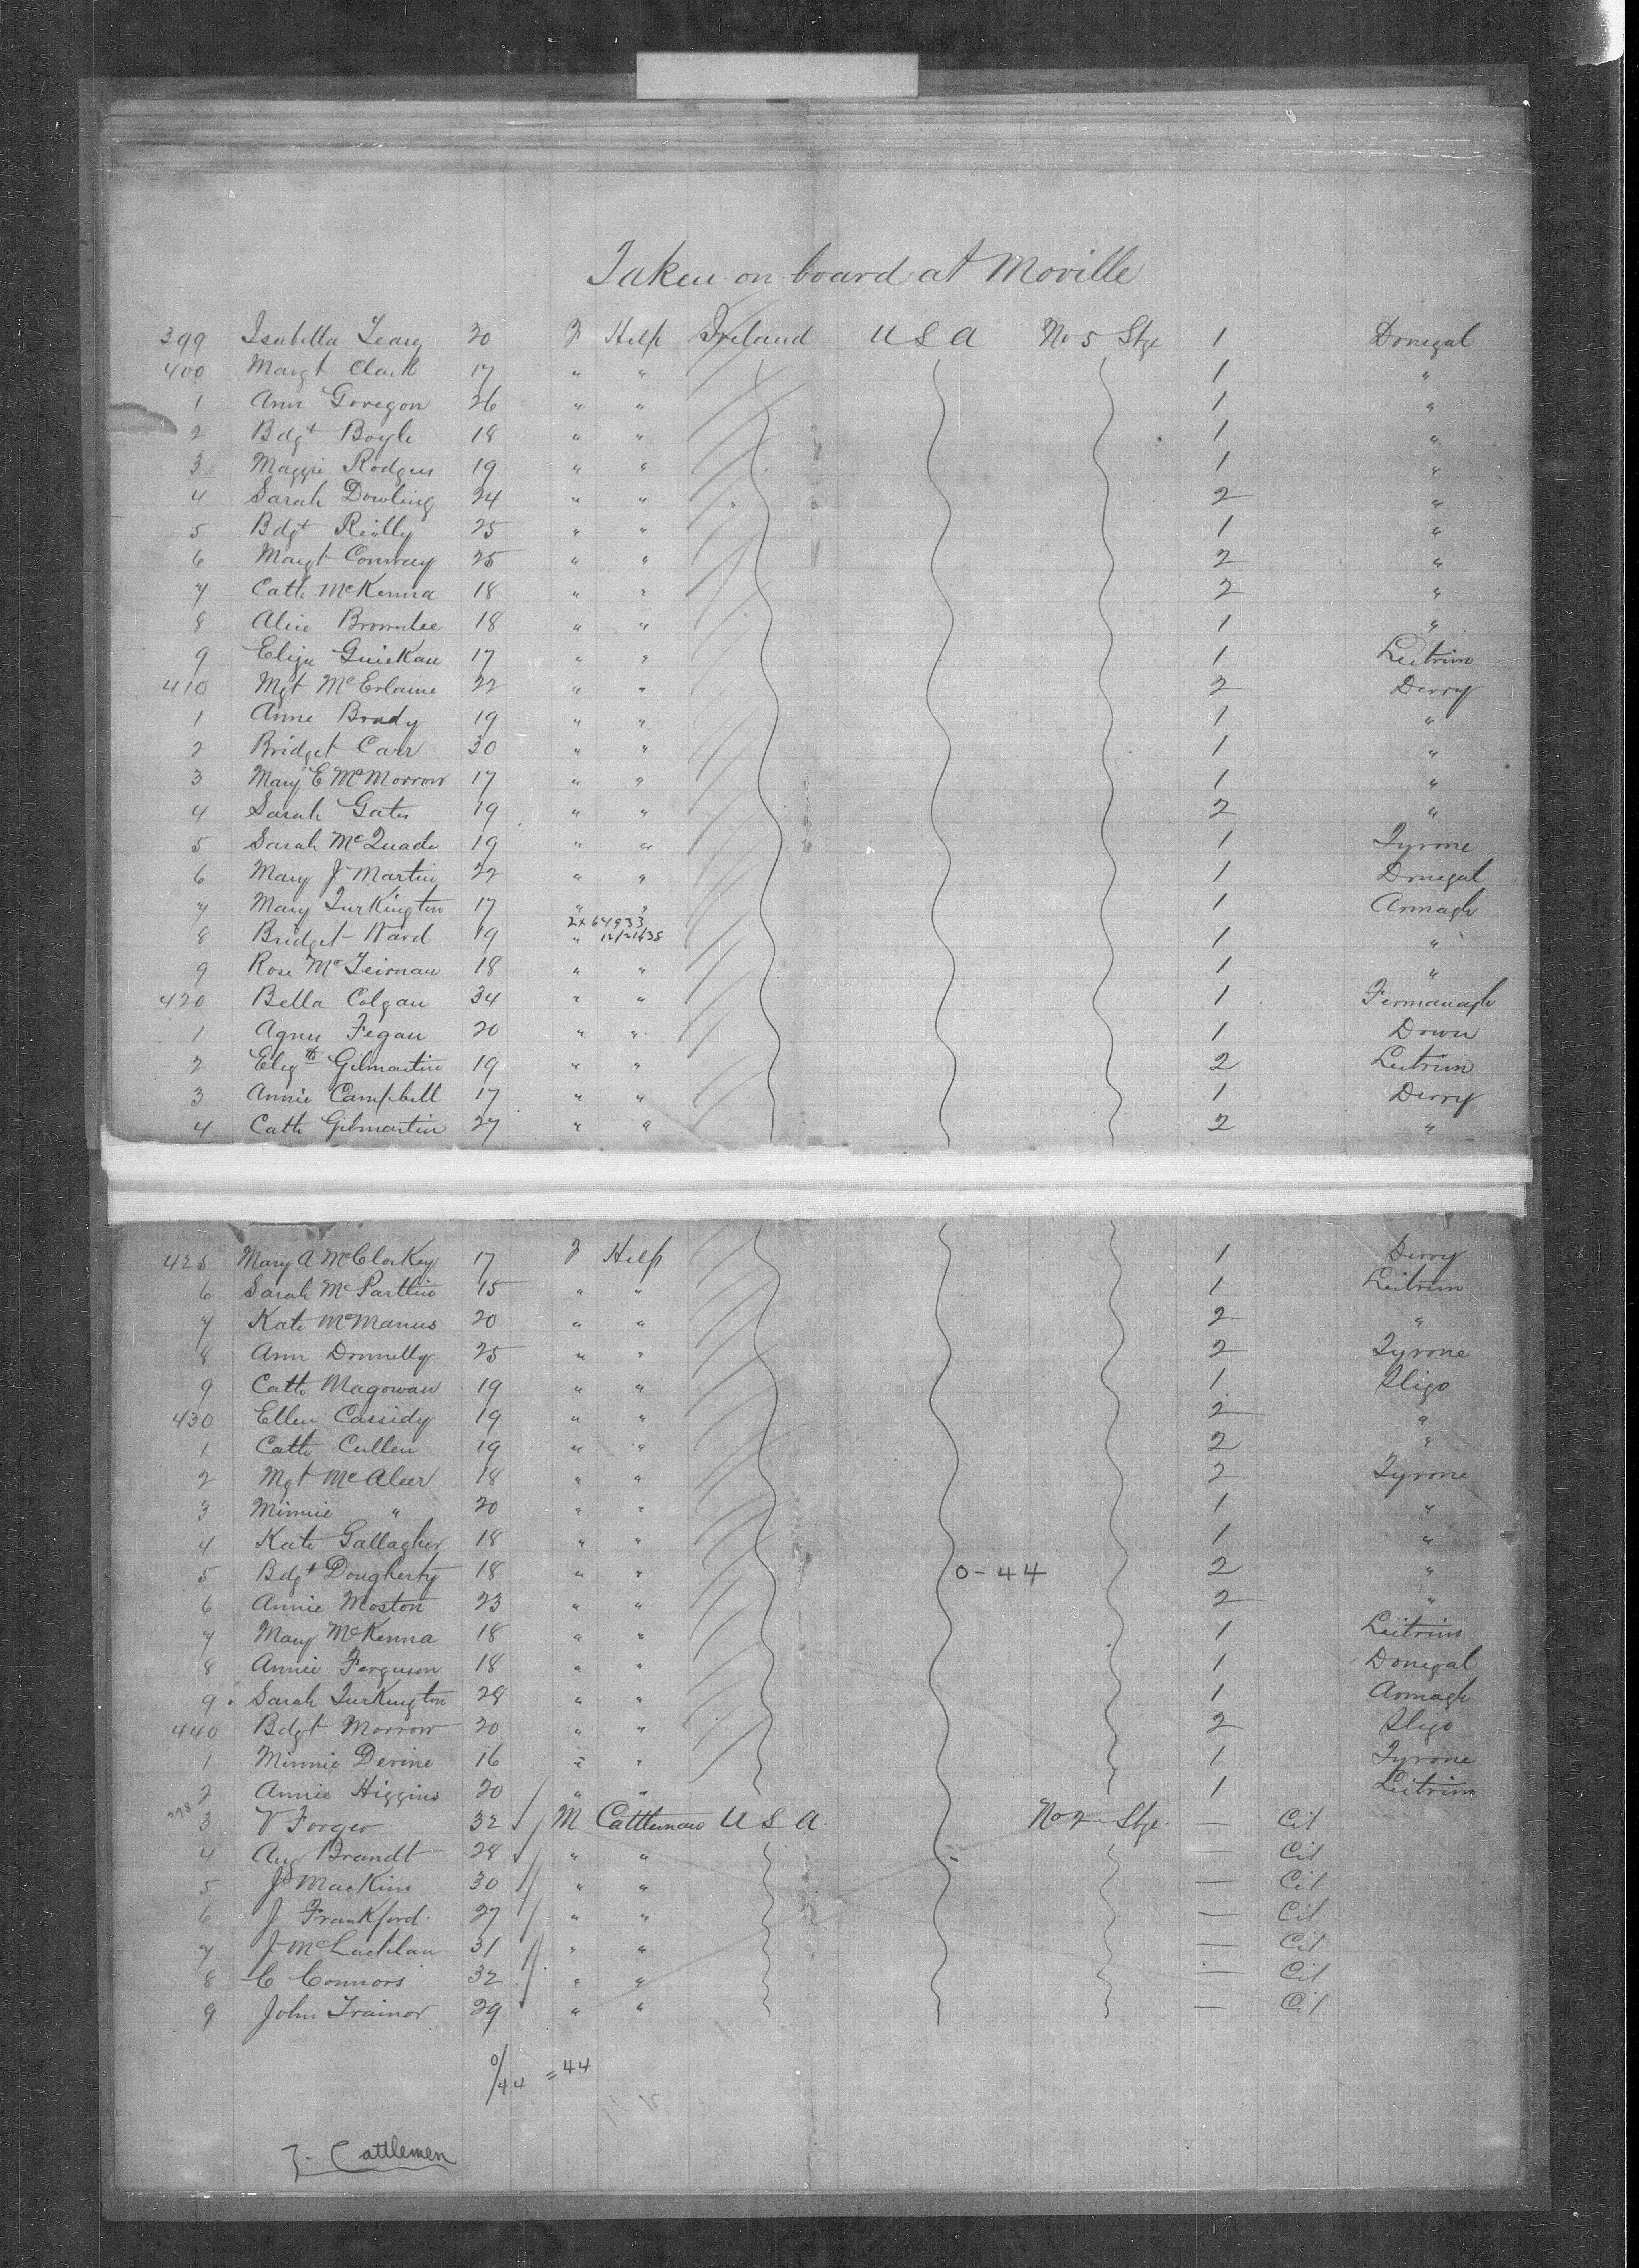 Taken on board at Moville
399 Isabella Leary 20 F Help Ireland U S A No 5 Stge 1 Donegal
400 Margt Clark 17 " " 1 "
1 Ann Goregon 26 " " 1 "
2 Bdgt Boyle 18 " " 1 "
3 Maggie Rodgers 19 " " 1 "
4 Sarah Dowling 24 " " 2 "
5 Bdgt Reilly 25 " " 1 "
6 Margt Conway 25 " " 2 "
7 Cath McKenna 18 " " 2 "
8 Alice Brownlee 18 " " 1 "
9 Eliza Guickan 17 " " 1 Leitrim
410 Mgt McErlaine 22 " " 2 Derry
1 Anne Brady 19 " " 1 "
2 Bridget Carr 30 " " 1 "
3 Mary E McMorrow 17 " " 1 "
4 Sarah Gates 19 " " 2 "
5 Sarah McQuade 19 " " 1 Tyrone
6 Mary J Martin 22 " " 1 Donegal
7 Mary Turkington 17 " " 1 Armagh
2x64933
8 Bridget Ward 19 " 12/21/38 1 "
9 Rose McTeirnan 18 " " 1 "
420 Bella Colgan 34 " " 1 Fermanagh
1 Agnes Fegan 20 " " 1 Down
2 Elizth Gilmartin 19 " " 2 Leitrim
3 Annie Campbell 17 " " 1 Derry
4 Cath Gilmartin 27 " " 2 "
425 Mary A McCloskey 17 F Help 1 Derry
6 Sarah McPartlin 15 " " 1 Leitrim
7 Kate McManus 20 " " 2 "
8 Ann Donnelly 25 " " 2 Tyrone
9 Cath Magowan 19 " " 1 Sligo
430 Ellen Cassidy 19 " " 2 "
1 Cath Cullen 19 " " 2 "
2 Mgt McAleer 18 " " 2 Tyrone
3 Minnie " 20 " " 1 "
4 Kate Gallagher 18 " " 1 "
5 Bdgt Dougherty 18 " " 0-44 2 "
6 Annie Moston 23 " " 2 "
7 Mary McKenna 18 " " 1 Leitrim
8 Annie Ferguson 18 " " 1 Donegal
9 Sarah Turkington 28 " " 1 Armagh
440 Bdgt Morrow 20 " " 2 Sligo
1 Minnie Devine 16 " " 1 Tyrone
2 Annie Higgins 20 " " 1 Leitrim
3 V Forger 32 M Cattleman U S A No 2 Stge — Cit
4 Aug Brandt 28 " " — Cit
5 Jas Mackin 30 " " — Cit
6 J Frankford 27 " " — Cit
7 J McLachlan 31 " " — Cit
8 C Connors 32 " " — Cit
9 John Trainor 29 " " — Cit
0/44 = 44
7 - Cattlemen